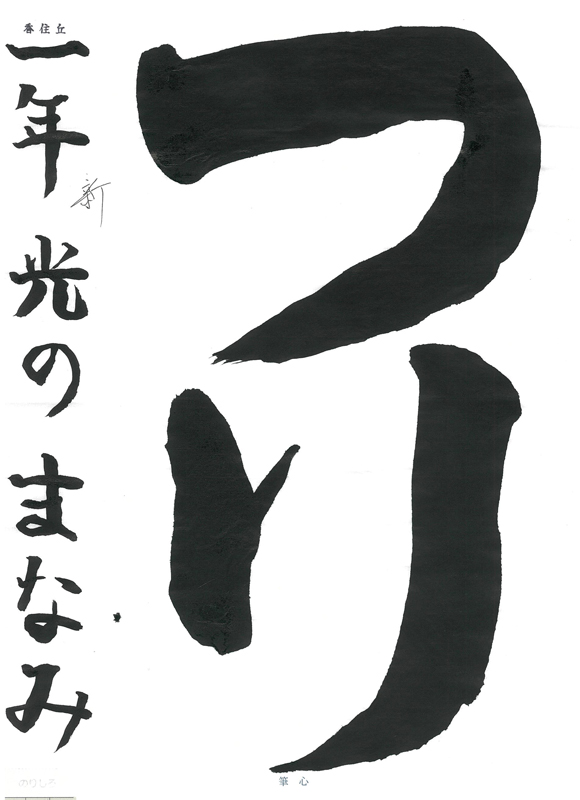 つり
香住丘
一年 光の まなみ
新
筆心
のりしろ